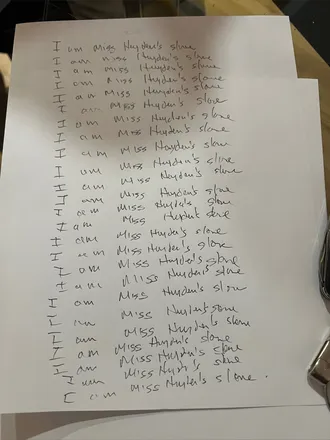 I am Miss Hayden's slave
I am Miss Hayden's slave
I am Miss Hayden's slave
I am Miss Hayden's slave
I am Miss Hayden's slave
I am Miss Hayden's slave
I am Miss Hayden's slave
I am Miss Hayden's slave
I am Miss Hayden's slave
I am Miss Hayden's slave
I am Miss Hayden's slave
I am Miss Hayden's slave
I am Miss Hayden's slave
I am Miss Hayden's slave
I am Miss Hayden's slave
I am Miss Hayden's slave
I am Miss Hayden's slave
I am Miss Hayden's slave
I am Miss Hayden's slave
I am Miss Hayden's slave
I am Miss Hayden's slave
I am Miss Hayden's slave
I am Miss Hayden's slave
I am Miss Hayden's slave
I am Miss Hayden's slave.